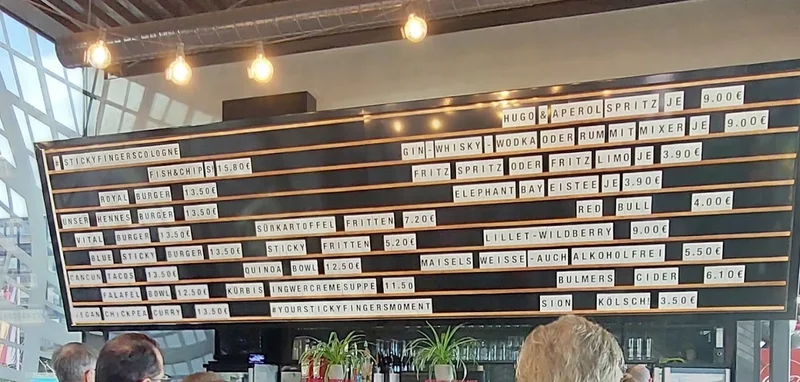 #STICKYFINGERSCOLOGNE
FISH&CHIPS 15,80€
ROYAL BURGER 13,50€
UNSER HENNES BURGER 13,50€
VITAL BURGER 13,50€
BLUE STICKY BURGER 13,50€
CANCUN TACOS 13,50€
FALAFEL BOWL 12,50€
VEGAN CHICKPEA CURRY 13,50€
SÜßKARTOFFEL FRITTEN 7,20€
STICKY FRITTEN 5,20€
QUINOA BOWL 12,50€
KÜRBIS INGWERCREMESUPPE 11,50
#YOURSTICKYFINGERSMOMENT
HUGO & APEROL SPRITZ JE 9.00€
GIN-WHISKY-WODKA ODER RUM MIT MIXER JE 9.00€
FRITZ SPRITZ ODER FRITZ LIMO JE 3.90€
ELEPHANT BAY EISTEE JE 3.90€
RED BULL 4.00€
LILLET-WILDBERRY 9.00€
MAISELS WEISSE-AUCH ALKOHOLFREI 5.50€
BULMERS CIDER 6.10€
SION KÖLSCH! 3.50€